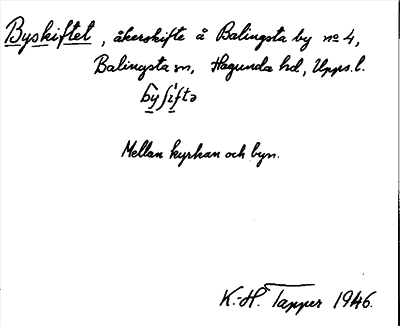 Byskiftet, åkerskifte å Balingsta by no 4,
Balingsta sn, Hagunda hd, Upps. l.
bỳʃíftə
Mellan kyrkan och byn.
K.-H. Tapper 1946.